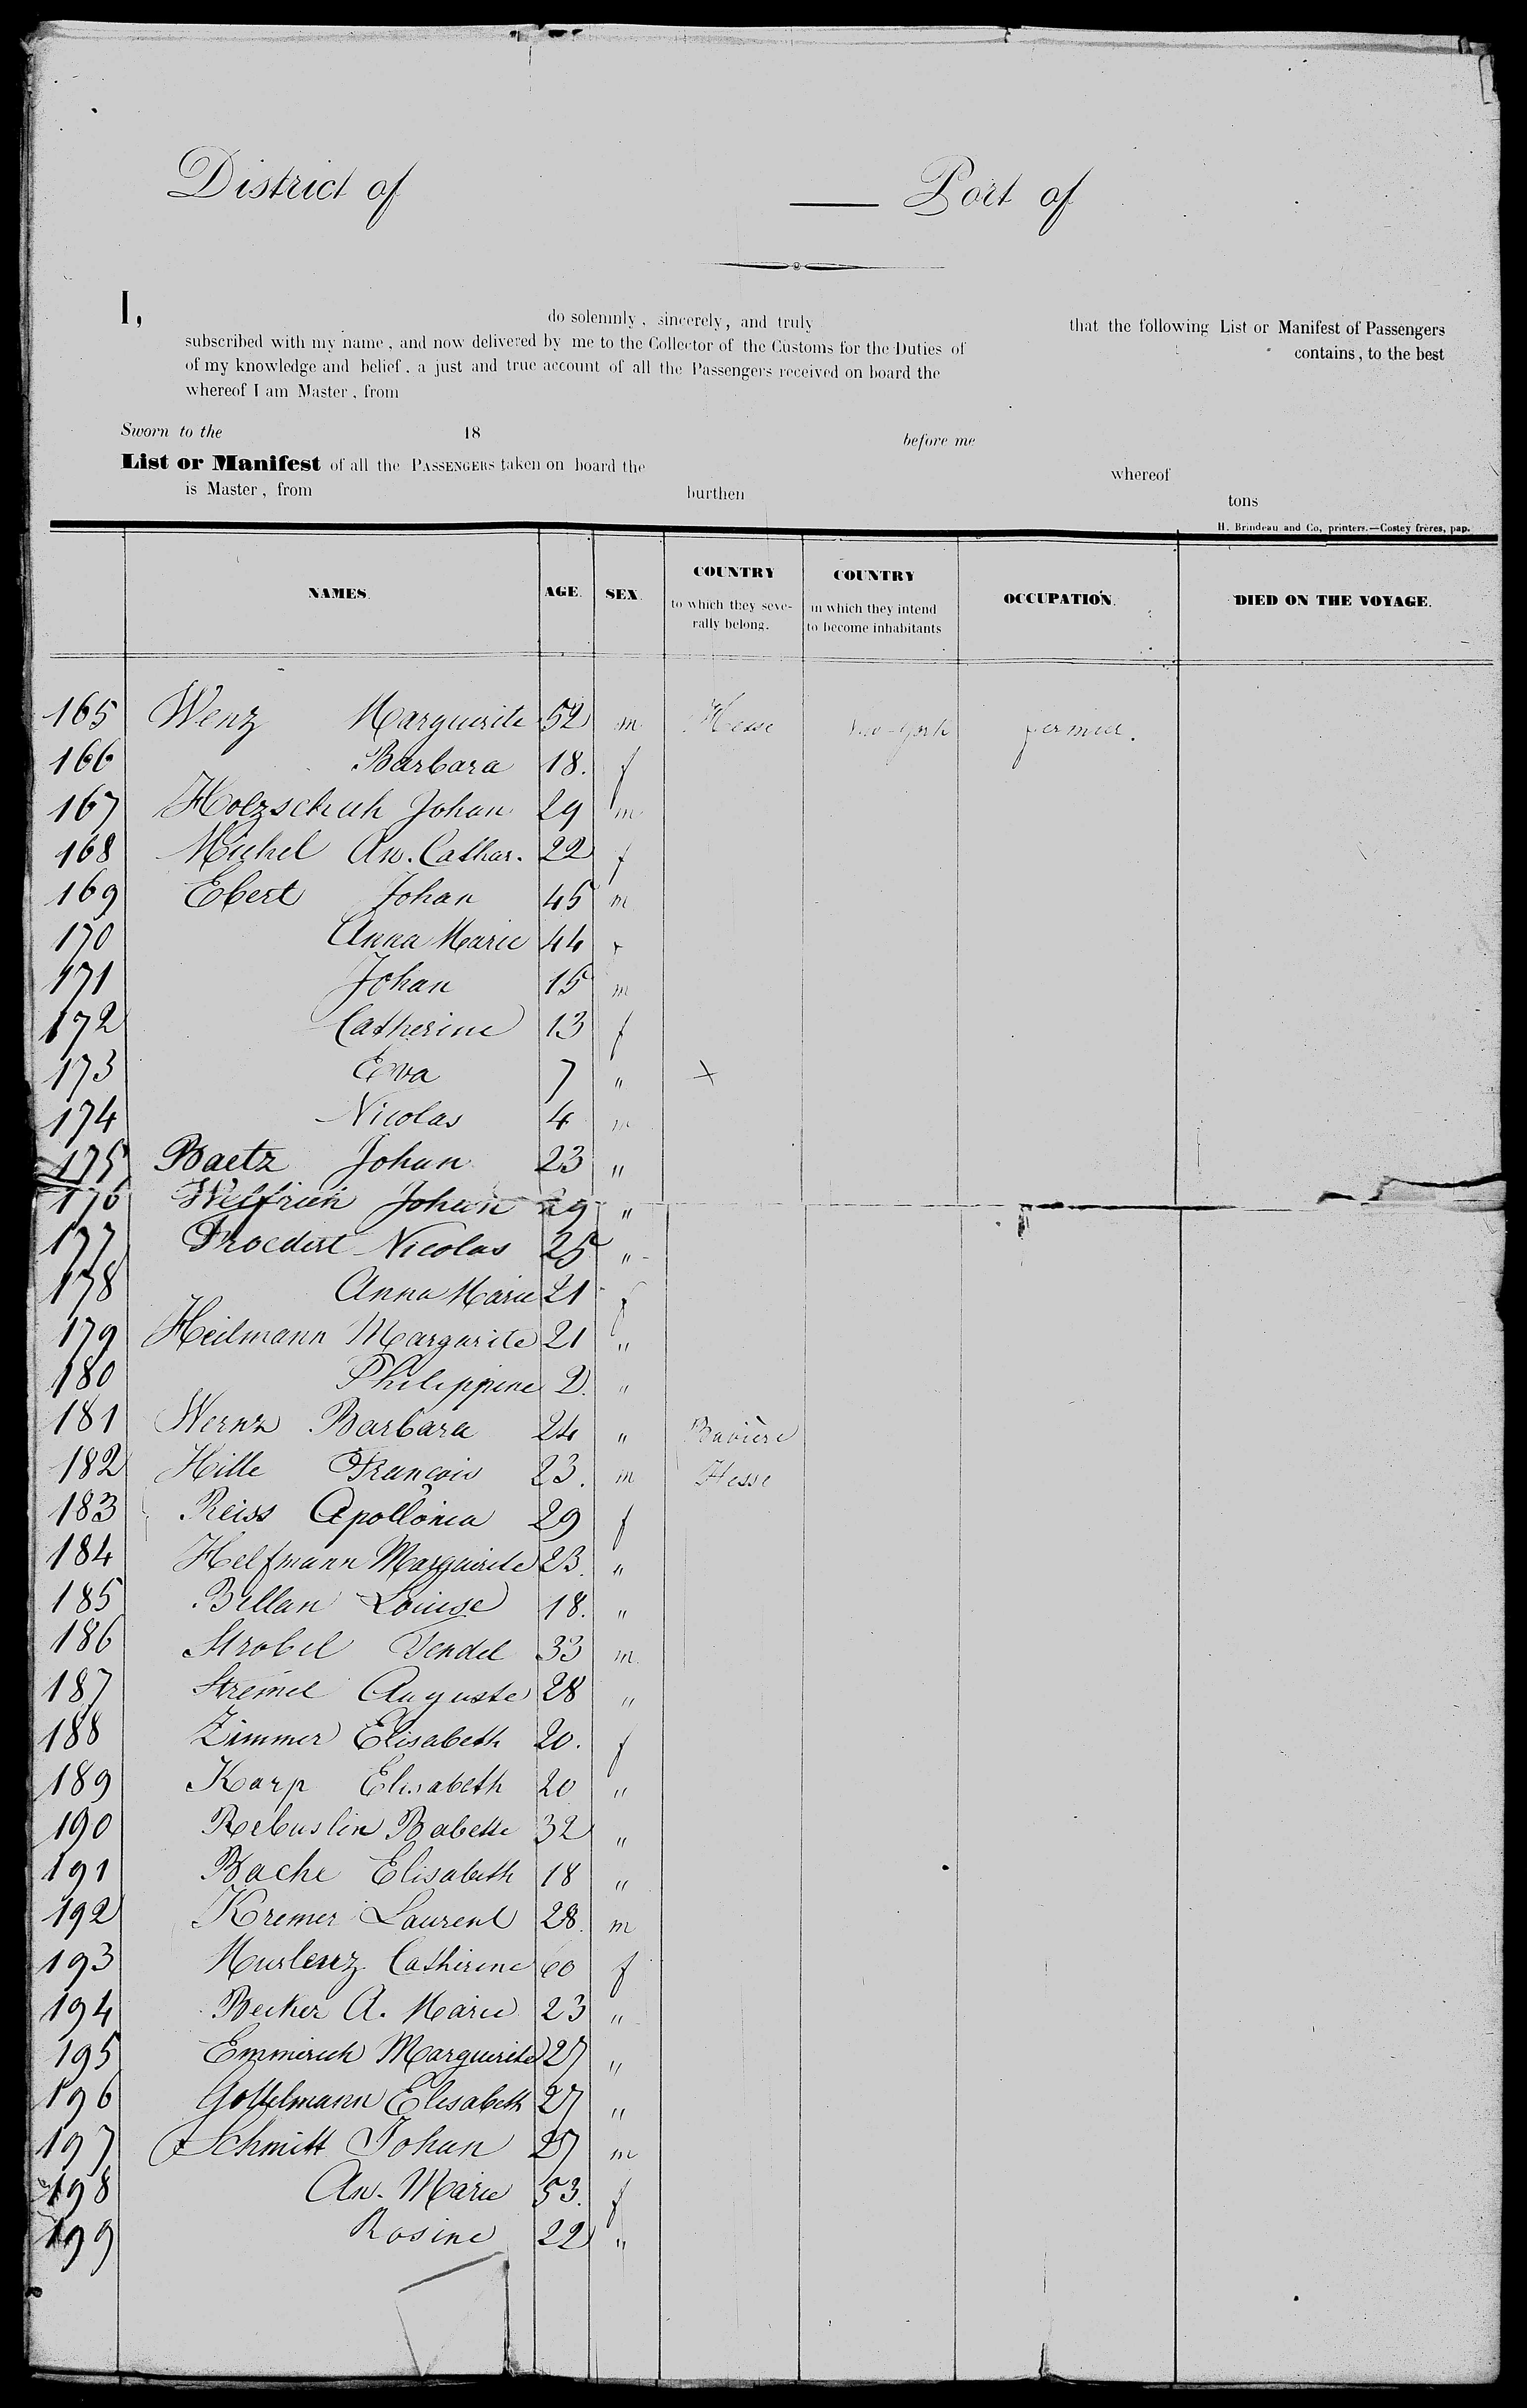 District of — Port of
I, do solemnly, sincerely, and truly that the following List or Manifest of Passengers
subscribed with my name, and now delivered by me to the Collector of the Customs for the Duties of contains, to the best
of my knowledge and belief, a just and true account of all the Passengers received on board the
whereof I am Master, from
Sworn to the 18 before me
List or Manifest of all the PASSENGERS taken on board the whereof
is Master, from burthen tons
H. Brindeau and Co, printers.—Costey frères, pap.
NAMES. AGE. SEX. COUNTRY to which they severally belong. COUNTRY in which they intend to become inhabitants OCCUPATION. DIED ON THE VOYAGE.
165 Wenz Marguerite 52 m Hesse New-York
166 Barbara 18. f
167 Holzschuh Johan 29 m
168 Michel An. Cathar. 22 f
169 Ebert Johan 45 m
170 Anna Marie 44 f
171 Johan 15 m
172 Catherine 13 f
173 Eva 7 " +
174 Nicolas 4 m
175 Baetz Johan 23 "
176 Welfrich Johan 29 "
177 Nicolas 25 "
178 Anna Marie 21 f
179 Heilmann Margarite 21 "
180 Philippine 2. "
181 Wernz Barbara 24 " Bavière
182 Hille François 23. m Hesse
183 Reiss Apollonia 29 f
184 Helfmann Marguirite 23. "
185 Billan Louise 18. "
186 Strobel Fendel 33 m
187 Auguste 28 "
188 Zimmer Elisabeth 20. f
189 Karp Elisabeth 20 "
190 Babette 32 "
191 Bache Elisabeth 18 "
192 Kremer Laurent 28. m
193 Catherine 60 f
194 Becker A. Marie 23 "
195 Emmerich Marguerite 27 "
196 Gottelmann Elisabeth 27 "
197 Schmitt Johan 27 m
198 An. Marie 53. f
199 Rosine 22 "